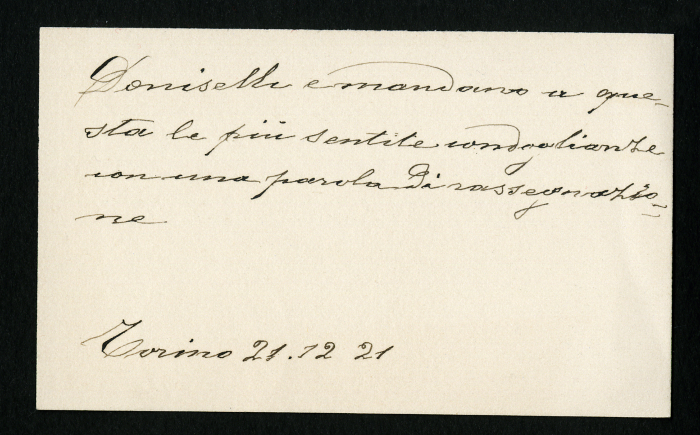 Doniselli e mandano a que-
sta le più sentite condoglianze
con una parola di rassegnazio=
ne
Torino 21.12 21